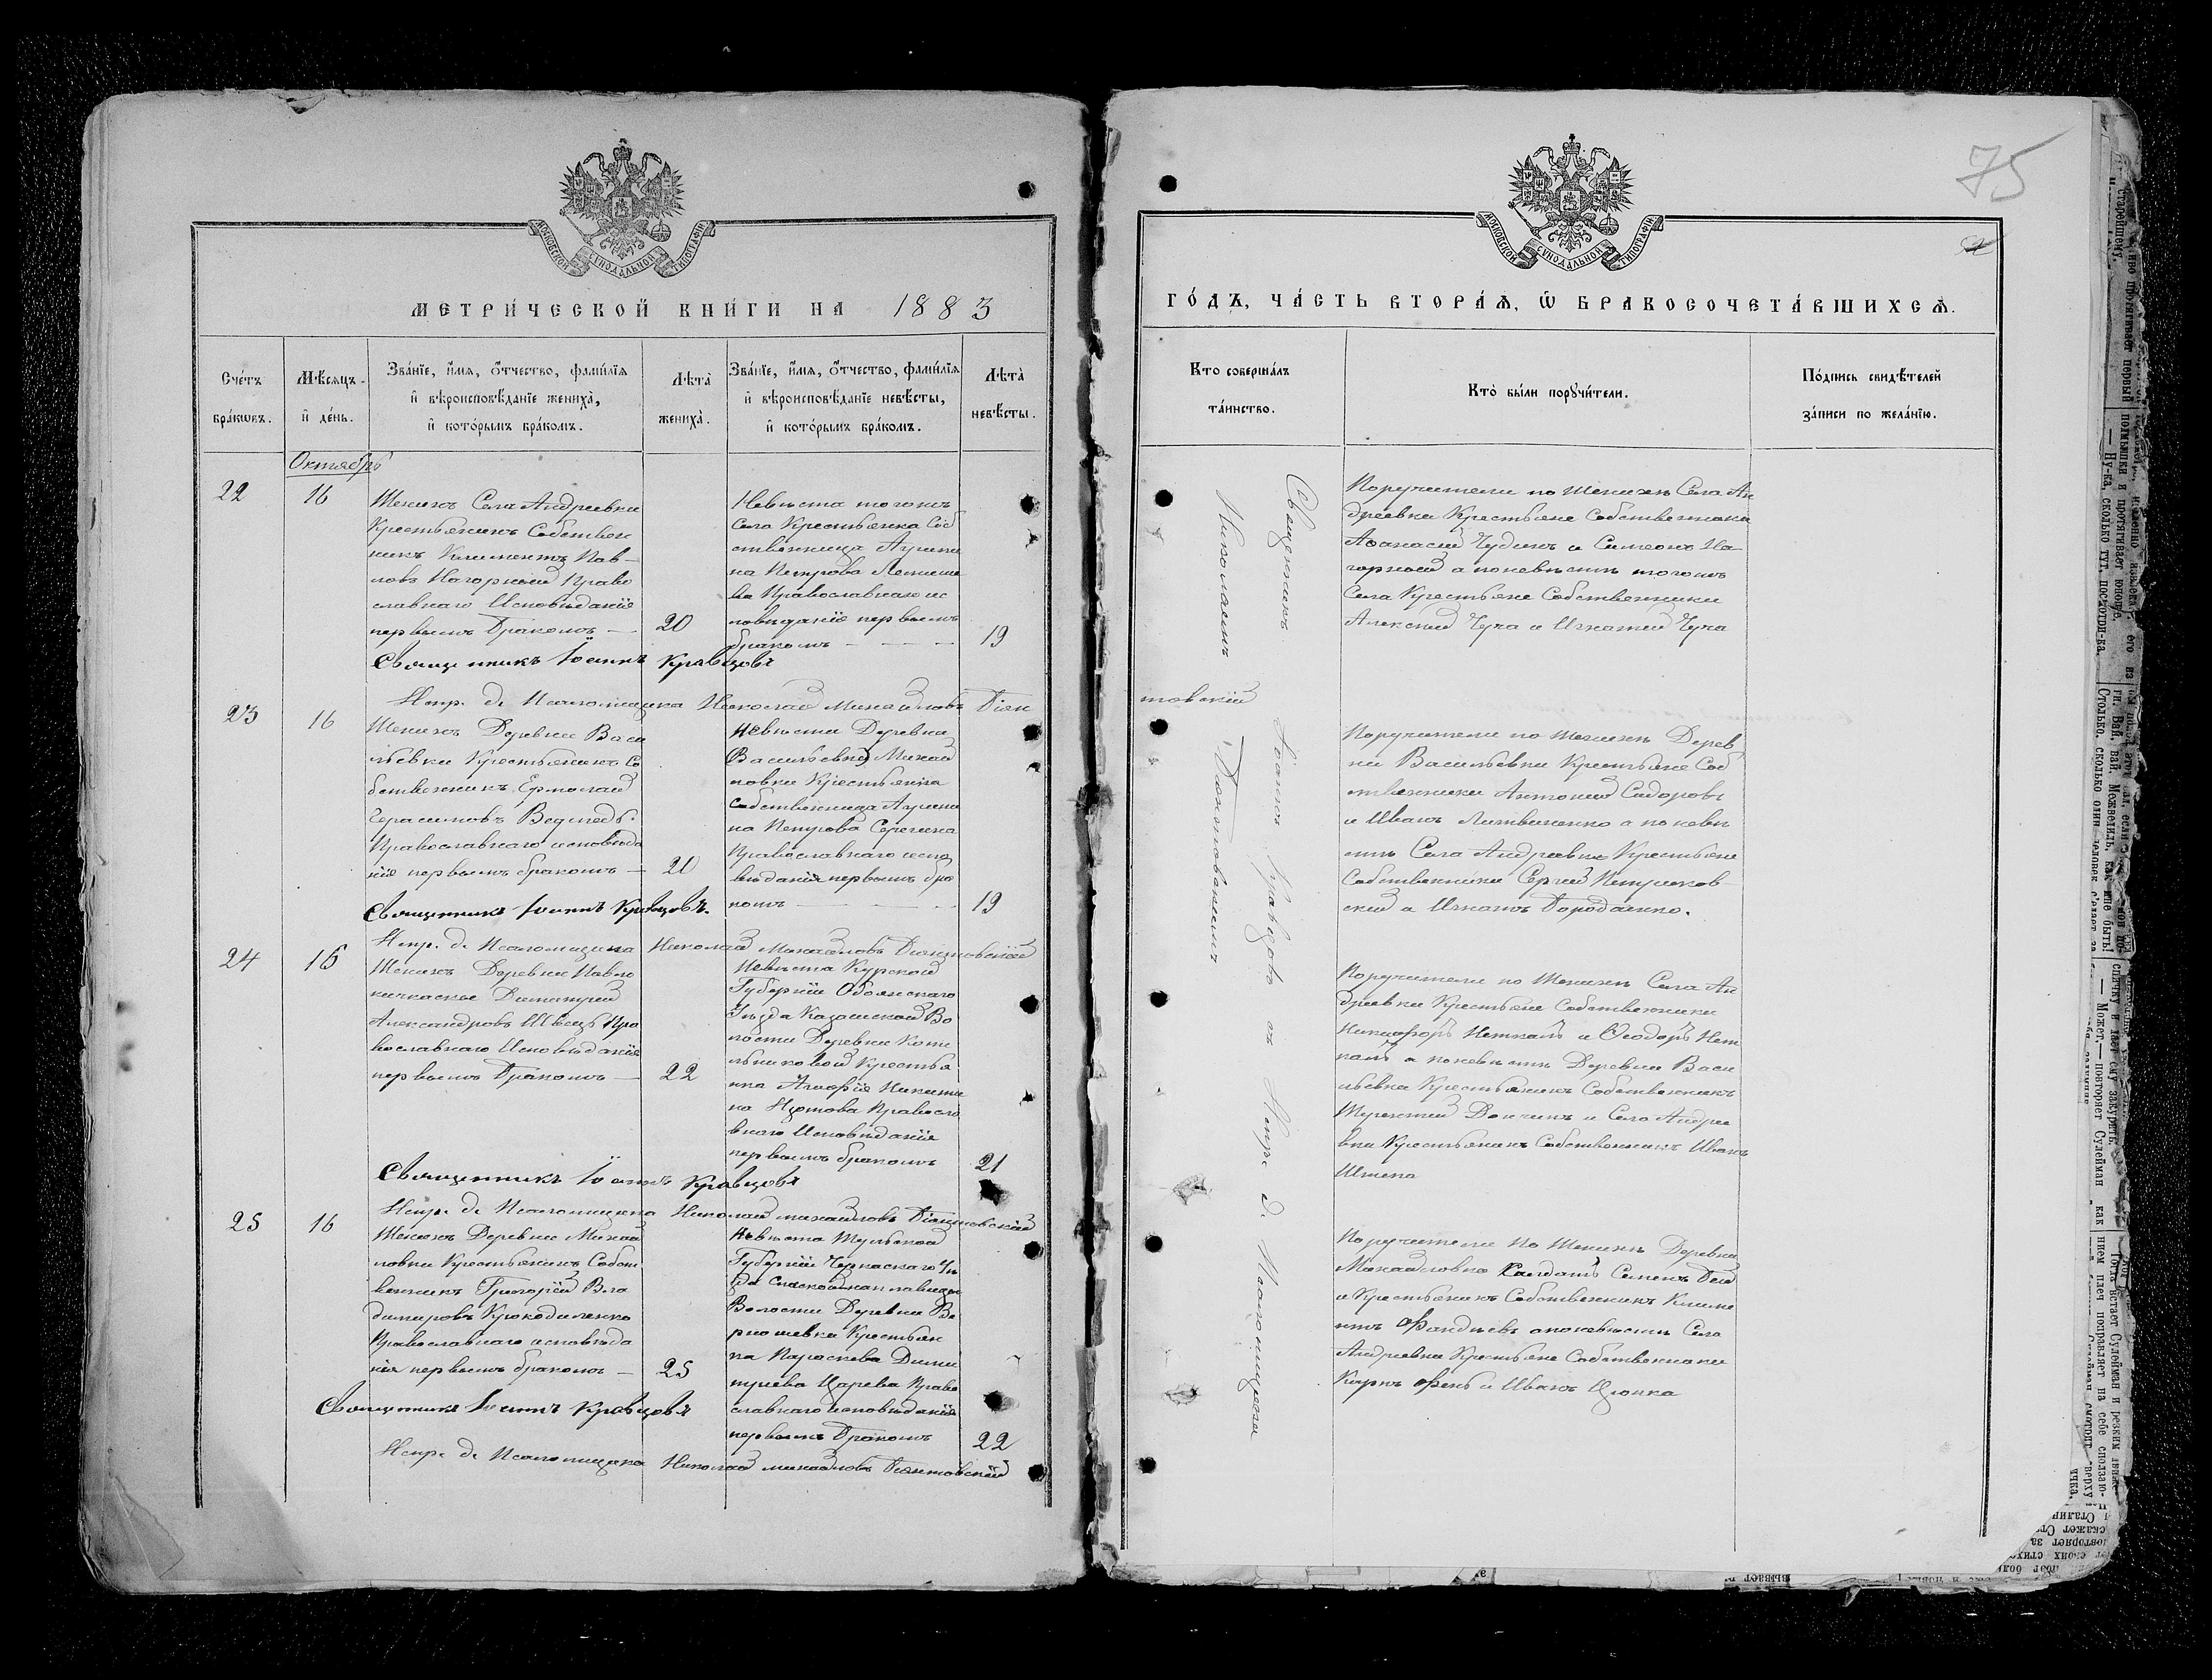 МОСКОВСКОЙ СѴНОДАЛЬНОЙ ТИПОГРАФІИ
МЕТРИ́ЧЕСКОЙ КНИ́ГИ НА 1883
Сче́тъ бра́кѡвъ.
Мѣ́сяцъ и҆ де́нь.
Зва́нїе, и҆́мѧ, ѻ҆́тчество, фами́лїѧ и҆ вѣроисповѣ́данїе жениха̀, и҆ кото́рымъ бра́комъ.
Лѣта̀ жениха̀.
Зва́нїе, и҆́мѧ, ѻ҆́тчество, фами́лїѧ и҆ вѣроисповѣ́данїе невѣ́сты, и҆ кото́рымъ бра́комъ.
Лѣта̀ невѣ́сты.
Октябрь
22
16
Женихъ Села Андреевки
Крестьянинъ Собствен
никъ Климентъ Пав-
ловъ Нагорный Право
славнаго Исповѣданія
первымъ Бракомъ —
20
Невѣста тогожъ
Села Крестьянка Соб
ственница Агрипи
на Петрова
ва Православнаго ис
повѣданія первымъ
бракомъ — — —
19
Священникъ Іоаннъ Кравцовъ
Испр. д. Псаломщика Николай Михайловъ Діяк
товскій
23
16
Женихъ Деревни Васи
льевки Крестьянинъ Со
бственникъ Ермолай
Герасимовъ Ведмедь.
Православнаго исповѣда
нія первымъ бракомъ —
20
Невѣста Деревни
Васильевки) Михай
ловки Крестьянка
Собственница Агрипи
на Петрова Серегина
Православнаго испо
вѣданія первымъ бра
комъ — — —
19
Священникъ Іоаннъ Кравцовъ.
Испр. д. Псаломщика Николай Михайловъ Діяктовскій
24
16
Женихъ Деревни Павло
кичкасъ Димитрій
Александровъ Швецъ Пра
вославнаго Исповѣданія
первымъ Бракомъ —
22
Невѣста Курской
Губерніи Обоянскаго
Уѣзда Казацкой Во
лости Деревни Коти
льниковой Крестья
нка Агафія Никити
на Православ
внаго Исповѣданія
первымъ бракомъ
21
Священникъ Іоаннъ Кравцовъ
Испр. д. Псаломщика Николай Михайловъ Діяктовскій
25
16
Женихъ Деревни Михай
ловки Крестьянинъ Собст
венникъ Григорій Вла
димировъ Крокодиленко
Православнаго исповѣда
нія первымъ бракомъ —
25
Невѣста Тульской
Губерніи Черкаскаго Уѣ
зда
Волости Деревни Во
Крестьян
ка Параскева Дими
тріева Царева Право
славнаго исповѣданія
первымъ Бракомъ
22
Священникъ Іоаннъ Кравцовъ
Испр. д. Псаломщика Николай Михайловъ Діяктовскій
75
МОСКОВСКОЙ СѴНОДАЛЬНОЙ ТИПОГРАФІИ
ГО́ДЪ, ЧА́СТЬ ВТОРА́Ѧ, Ѡ҆ БРАКОСОЧЕТА́ВШИХСѦ.
Кто соверша́лъ та́инство.
Кто̀ бы́ли порꙋчи́тели.
По́дпись свидѣ́телей за́писи по жела́нїю.
Священникъ Іоаннъ Кравцовъ съ Испр. д. Псаломщика
Николаемъ Діяктовскимъ
Поручители по Женихѣ Села Ан
дреевки Крестьяне Собственники
Афанасій Чудинъ и Симеонъ На-
горный а по невѣстѣ тогожъ
Села Крестьяне Собственники
Алексѣй Чуча и Игнатій Чуча
Поручители по Женихѣ Дерев
ни Васильевки Крестьяне Соб
ственники Антоній Сидоровъ
и Иванъ Литвиненко а по невѣ
стѣ Села Андреевки Крестьяне
Собственники Сергій Петриков-
скій и Игнатъ Бородаенко.
Поручители по Женихѣ Села Ан
дреевки Крестьяне Собственники
Никифоръ Неткалъ и Ѳеодоръ Нет
калъ а по невѣстѣ Деревни Васи
льевки Крестьянинъ Собственникъ
Терентій Дончикъ и Села Андрее
вки Крестьянинъ Собственникъ Иванъ
Шпета
Поручители по Женихѣ Деревни
Михайловки Солдатъ Семенъ Бой
и Крестьянинъ Собственникъ Климе
нтъ а по невѣстѣ Села
Андреевки Крестьяне Собственники
Карпъ Фень и Иванъ Цюпка